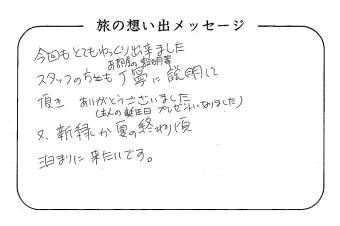 旅の想い出メッセージ
今回もとてもゆっくり出来ました
お部屋の説明等
スタッフの方も丁寧に説明して
頂き ありがとうございました
(主人の誕生日プレゼントになりました)
又、新緑か夏の終わり頃
泊まりに来たいです。